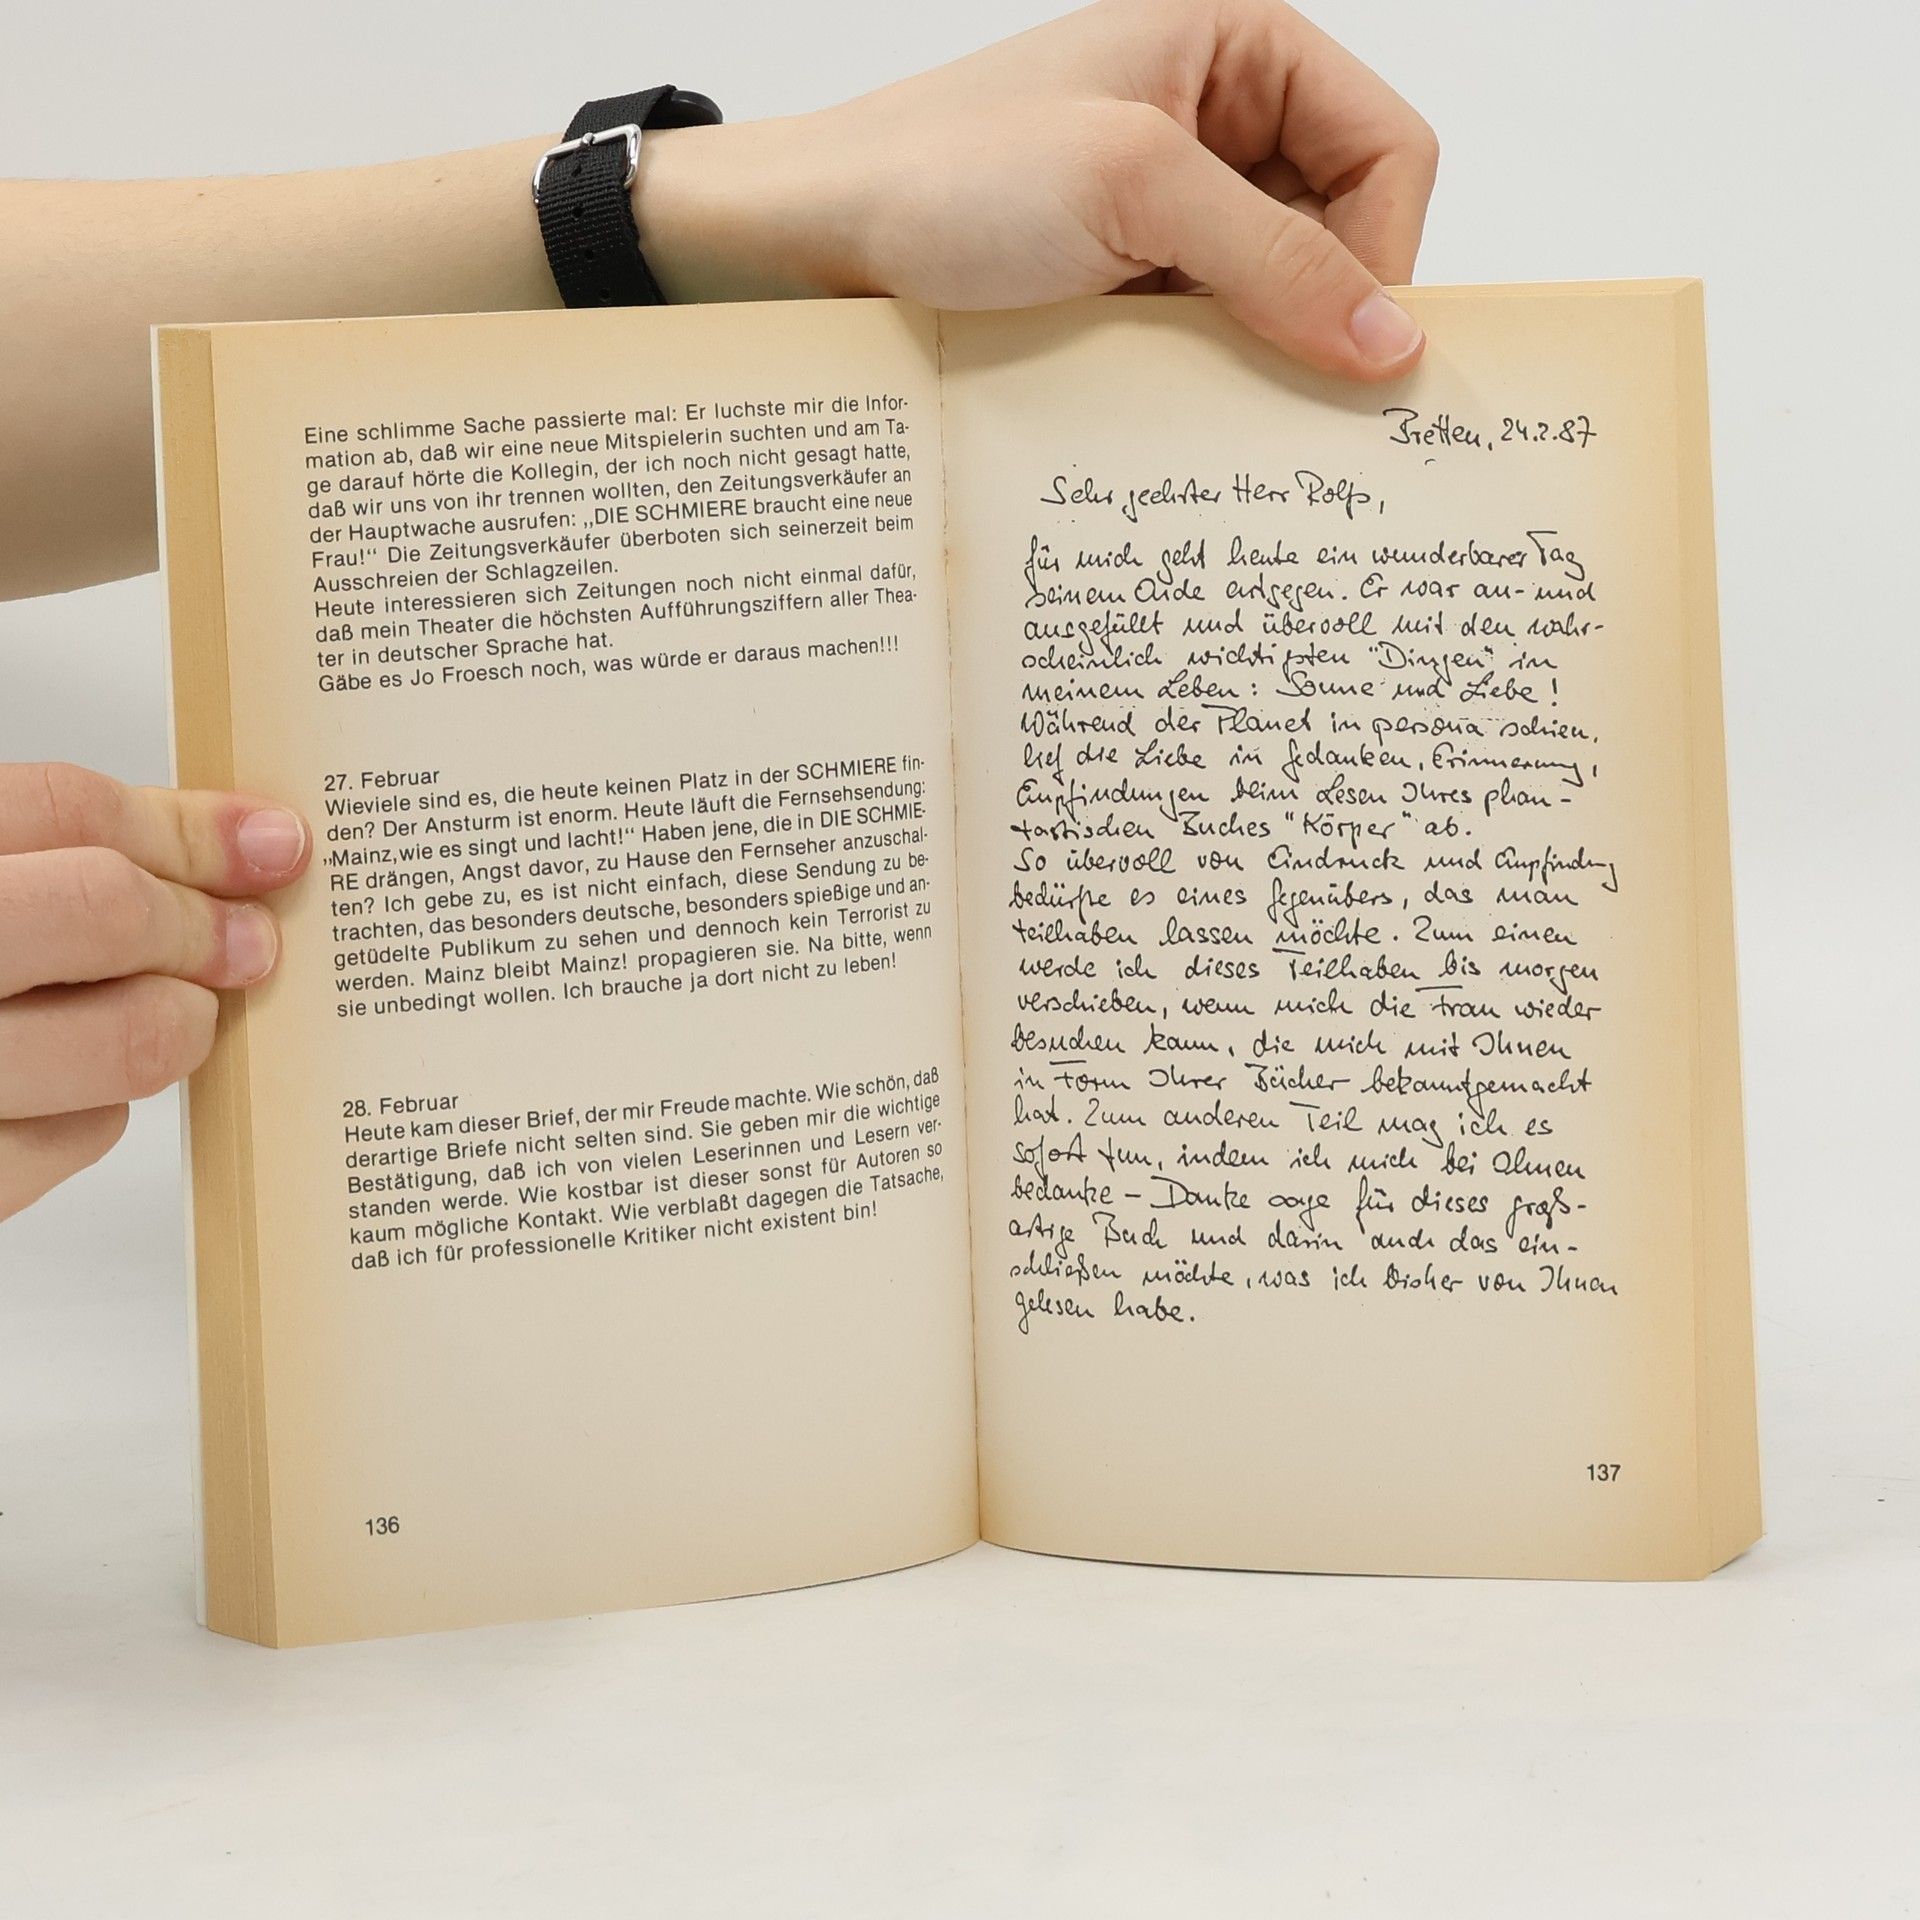 Eine schlimme Sache passierte mal: Er luchste mir die Infor-
mation ab, daß wir eine neue Mitspielerin suchten und am Ta-
ge darauf hörte die Kollegin, der ich noch nicht gesagt hatte,
daß wir uns von ihr trennen wollten, den Zeitungsverkäufer an
der Hauptwache ausrufen: „DIE SCHMIERE braucht eine neue
Frau!“ Die Zeitungsverkäufer überboten sich seinerzeit beim
Ausschreien der Schlagzeilen.
Heute interessieren sich Zeitungen noch nicht einmal dafür,
daß mein Theater die höchsten Aufführungsziffern aller Thea-
ter in deutscher Sprache hat.
Gäbe es Jo Froesch noch, was würde er daraus machen!!!
27. Februar
Wieviele sind es, die heute keinen Platz in der SCHMIERE fin-
den? Der Ansturm ist enorm. Heute läuft die Fernsehsendung:
„Mainz, wie es singt und lacht!“ Haben jene, die in DIE SCHMIE-
RE drängen, Angst davor, zu Hause den Fernseher anzuschal-
ten? Ich gebe zu, es ist nicht einfach, diese Sendung zu be-
trachten, das besonders deutsche, besonders spießige und an-
getüdelte Publikum zu sehen und dennoch kein Terrorist zu
werden. Mainz bleibt Mainz! propagieren sie. Na bitte, wenn
sie unbedingt wollen. Ich brauche ja dort nicht zu leben!
28. Februar
Heute kam dieser Brief, der mir Freude machte. Wie schön, daß
derartige Briefe nicht selten sind. Sie geben mir die wichtige
Bestätigung, daß ich von vielen Leserinnen und Lesern ver-
standen werde. Wie kostbar ist dieser sonst für Autoren so
kaum mögliche Kontakt. Wie verblaßt dagegen die Tatsache,
daß ich für professionelle Kritiker nicht existent bin!
136
Bretten, 24.2.87
Sehr geehrter Herr Rolfs,
für mich geht heute ein wunderbarer Tag
seinem Ende entgegen. Er war an- und
ausgefüllt und übervoll mit den wahr-
scheinlich wichtigsten "Dingen" in
meinem Leben: Sonne und Liebe!
Während der Planet in persona schien,
lief die Liebe in Gedanken, Erinnerung,
Empfindungen beim Lesen Ihres phan-
tastischen Buches "Körper" ab.
So übervoll von Eindruck und Empfindung
bedürfte es eines Gegenübers, das man
teilhaben lassen möchte. Zum einen
werde ich dieses Teilhaben bis morgen
verschieben, wenn mich die Frau wieder
besuchen kann, die mich mit Ihnen
in Form Ihrer Bücher bekanntgemacht
hat. Zum anderen Teil mag ich es
sofort tun, indem ich mich bei Ihnen
bedanke – Danke sage für dieses groß-
artige Buch und darin auch das ein-
schließen möchte, was ich bisher von Ihnen
gelesen habe.
137